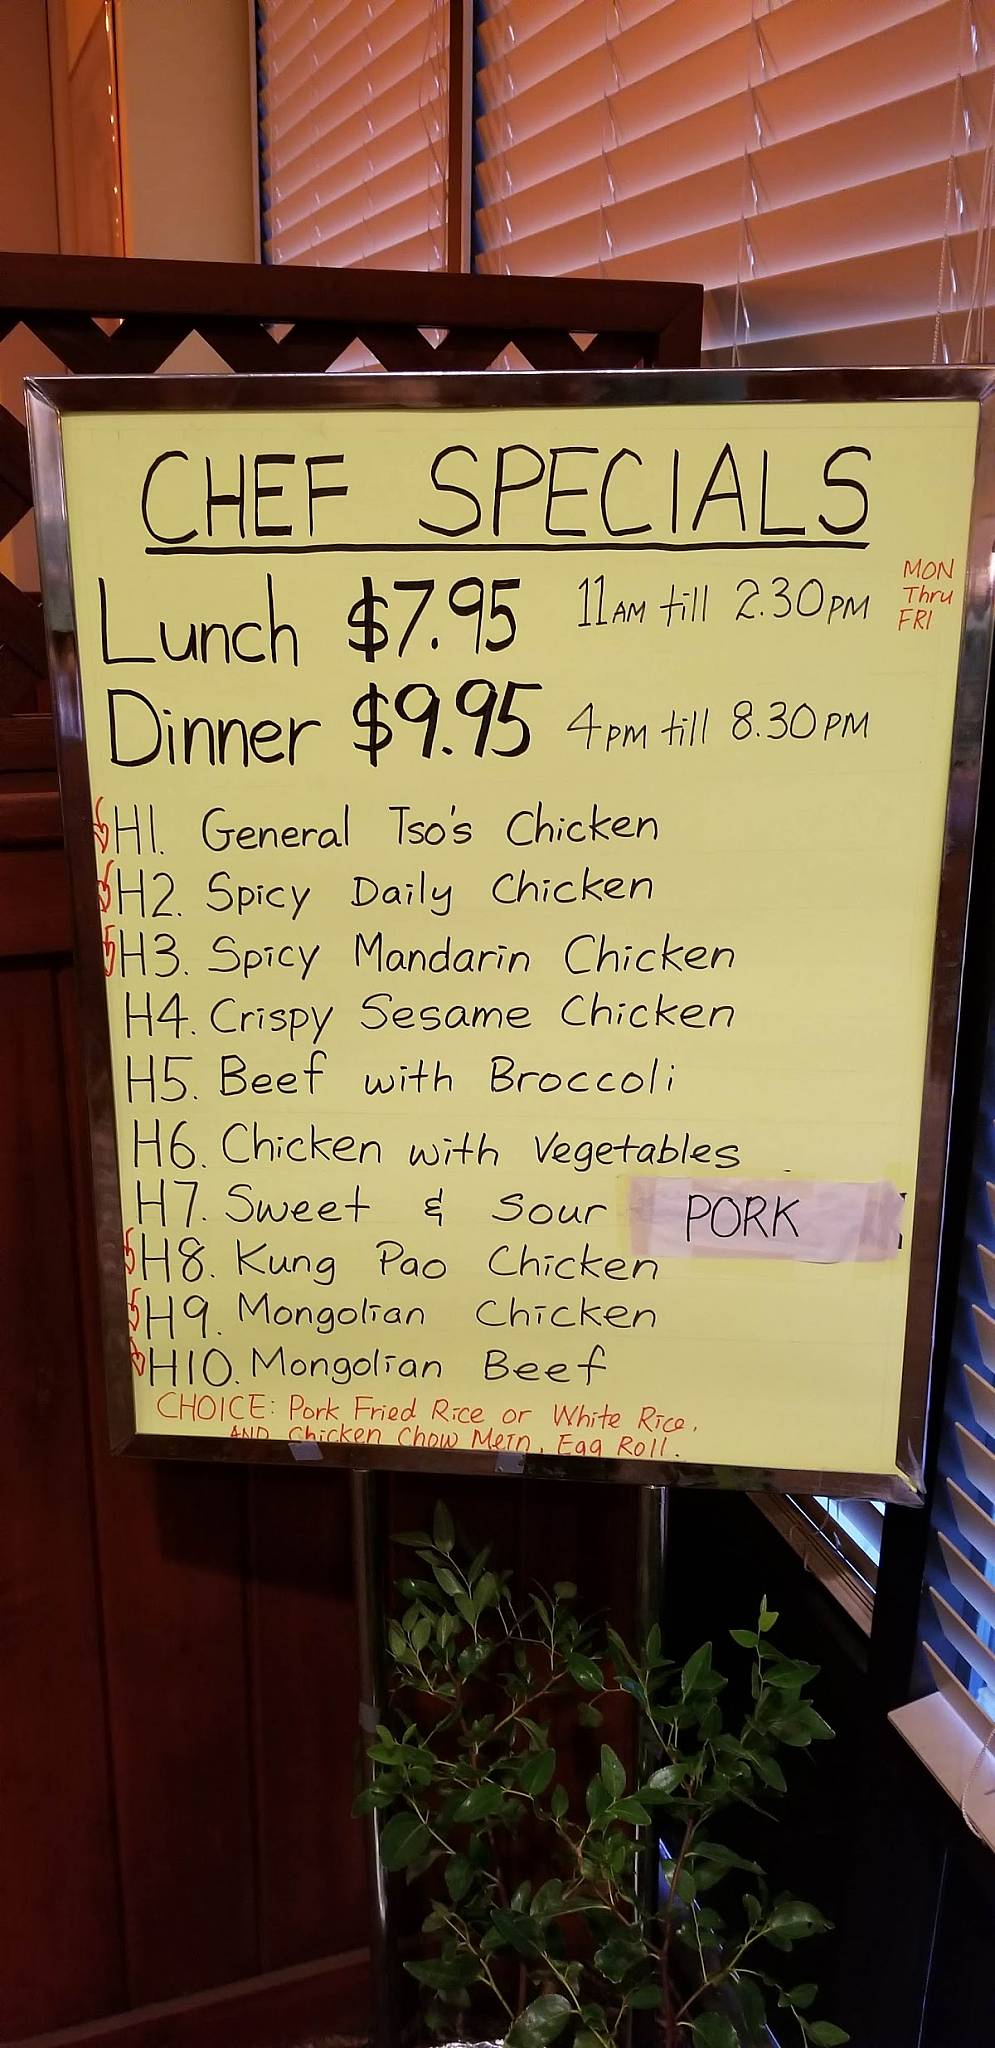 CHEF SPECIALS
Lunch $7.95 11AM till 2.30PM MON Thru FRI
Dinner $9.95 4PM till 8.30PM
H1. General Tso's Chicken
H2. Spicy Daily Chicken
H3. Spicy Mandarin Chicken
H4. Crispy Sesame Chicken
H5. Beef with Broccoli
H6. Chicken with Vegetables
H7. Sweet & Sour PORK
H8. Kung Pao Chicken
H9. Mongolian Chicken
H10. Mongolian Beef
CHOICE: Pork Fried Rice or White Rice,
AND Chicken Chow Mein, Egg Roll.